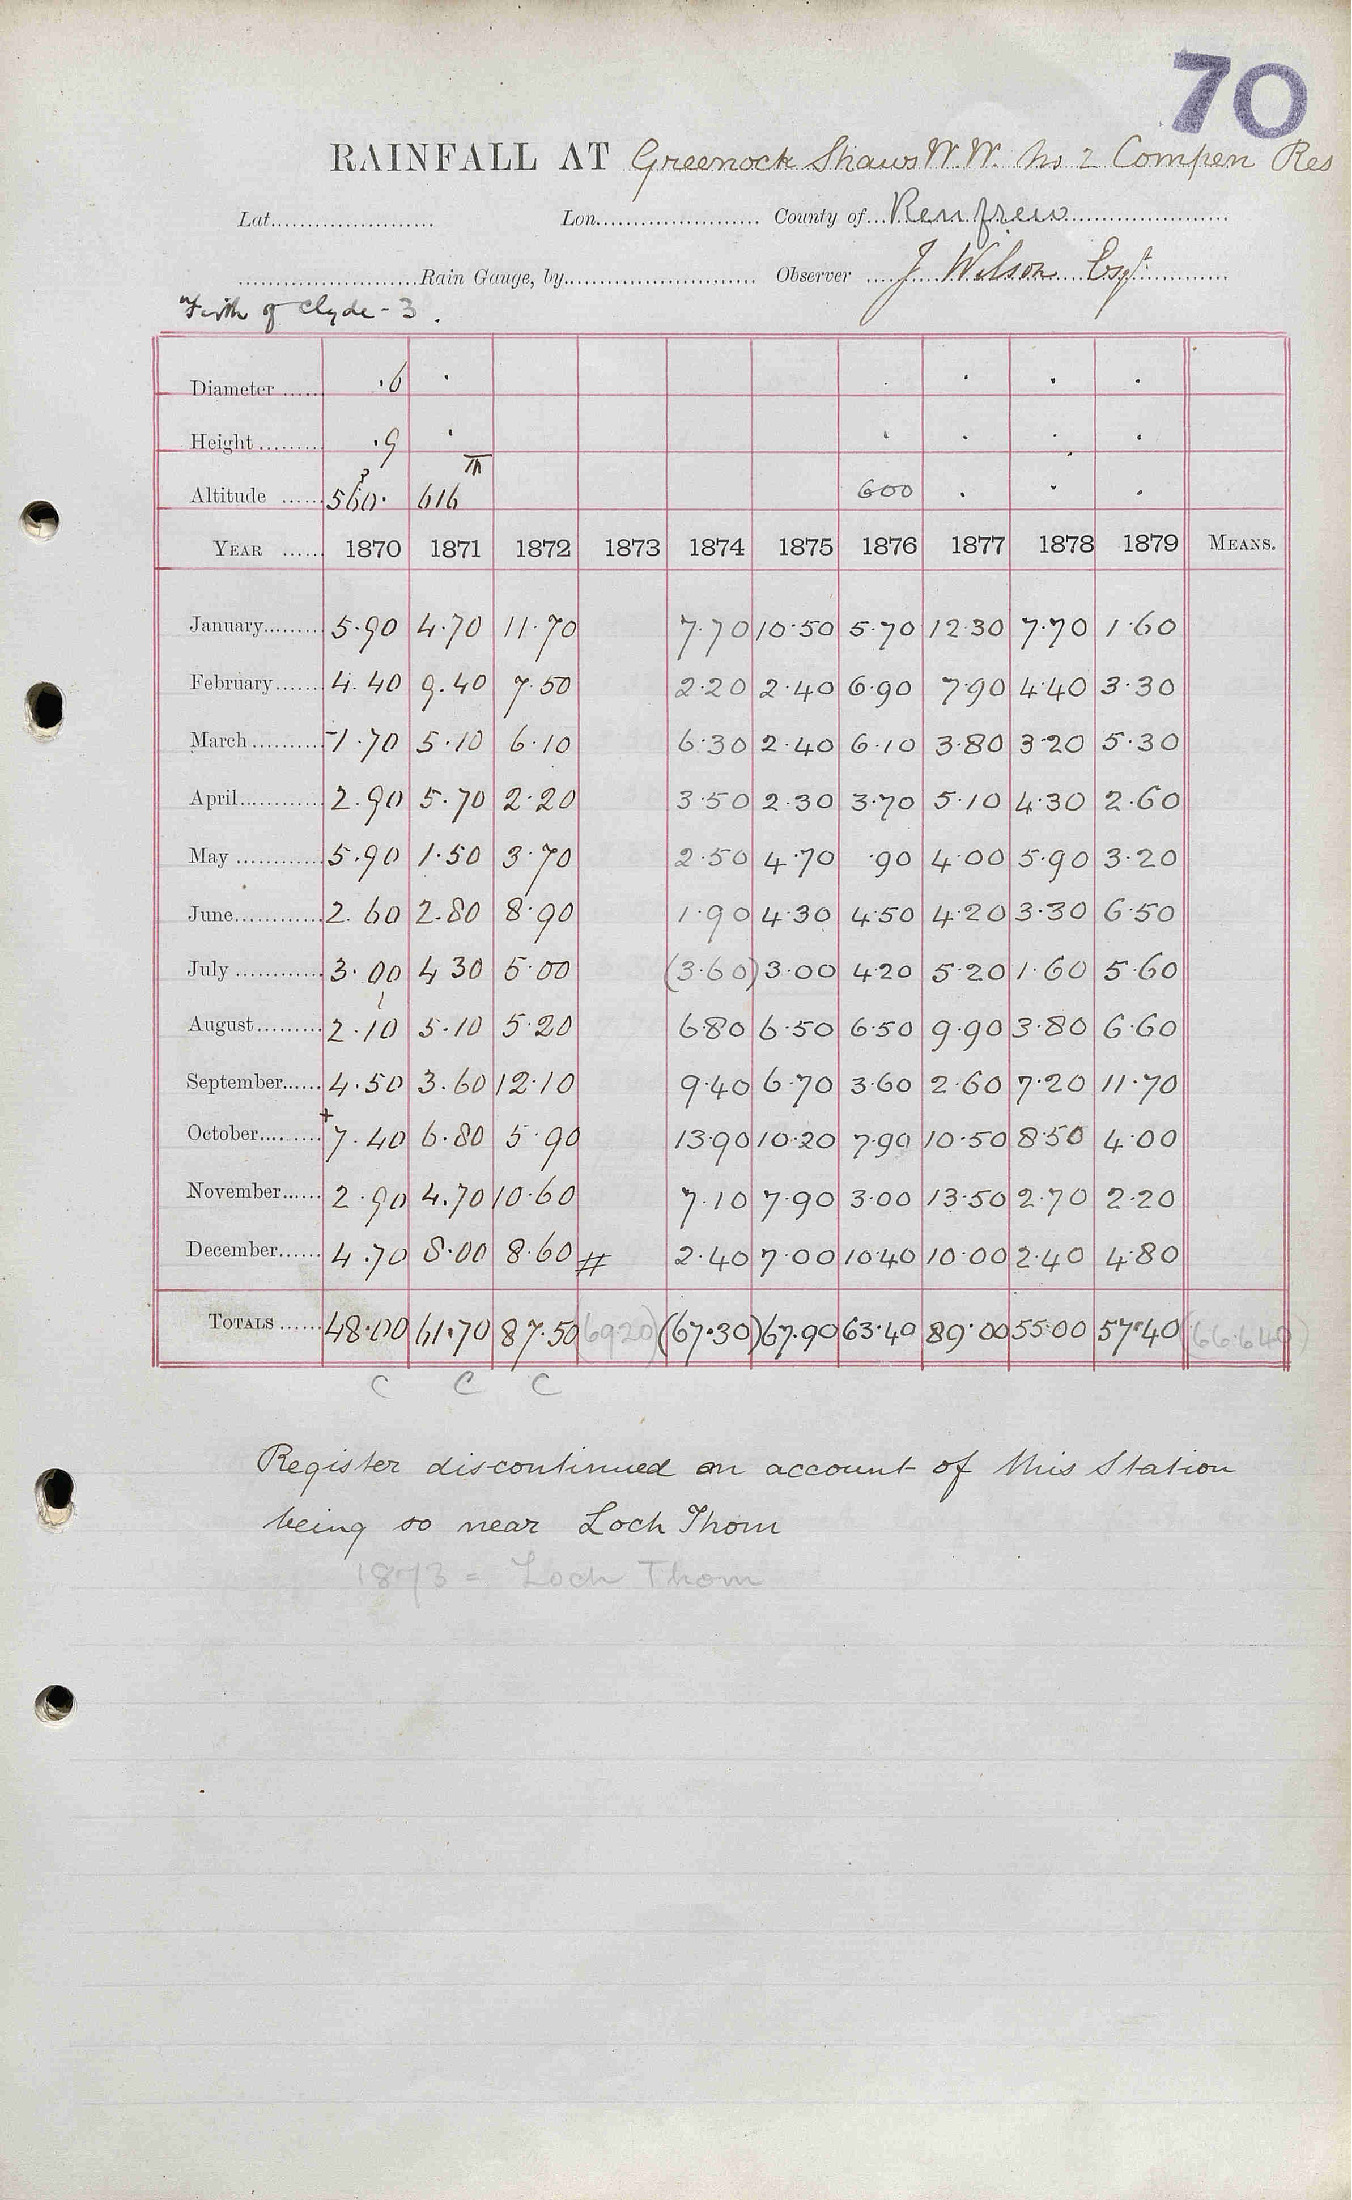 70
RAINFALL AT Greenock Shaws W.W. No 2 Compen Res
Lat. Lon. County of Renfrew
Rain Gauge, by Observer J. Wilson Esqr
Firth of Clyde - 3.
Diameter ·6 ·
Height ·9 ·
Altitude 560· 616 600
YEAR 1870 1871 1872 1873 1874 1875 1876 1877 1878 1879 MEANS.
January 5.90 4.70 11.70 7.70 10.50 5.70 12.30 7.70 1.60
February 4.40 9.40 7.50 2.20 2.40 6.90 7.90 4.40 3.30
March 1.70 5.10 6.10 6.30 2.40 6.10 3.80 3.20 5.30
April 2.90 5.70 2.20 3.50 2.30 3.70 5.10 4.30 2.60
May 5.90 1.50 3.70 2.50 4.70 .90 4.00 5.90 3.20
June 2.60 2.80 8.90 1.90 4.30 4.50 4.20 3.30 6.50
July 3.00 4 30 5.00 (3.60) 3.00 4.20 5.20 1.60 5.60
August 2.10 5.10 5.20 6.80 6.50 6.50 9.90 3.80 6.60
September 4.50 3.60 12.10 9.40 6.70 3.60 2.60 7.20 11.70
October +7.40 6.80 5.90 13.90 10.20 7.90 10.50 8.50 4.00
November 2.90 4.70 10.60 7.10 7.90 3.00 13.50 2.70 2.20
December 4.70 8.00 8.60 # 2.40 7.00 10.40 10.00 2.40 4.80
TOTALS 48.00 61.70 87.50 (69.20) (67.30) 67.90 63.40 89.00 55.00 57.40 (66.640)
C C C
Register discontinued on account of this Station
being so near Loch Thom
1873 = Loch Thom